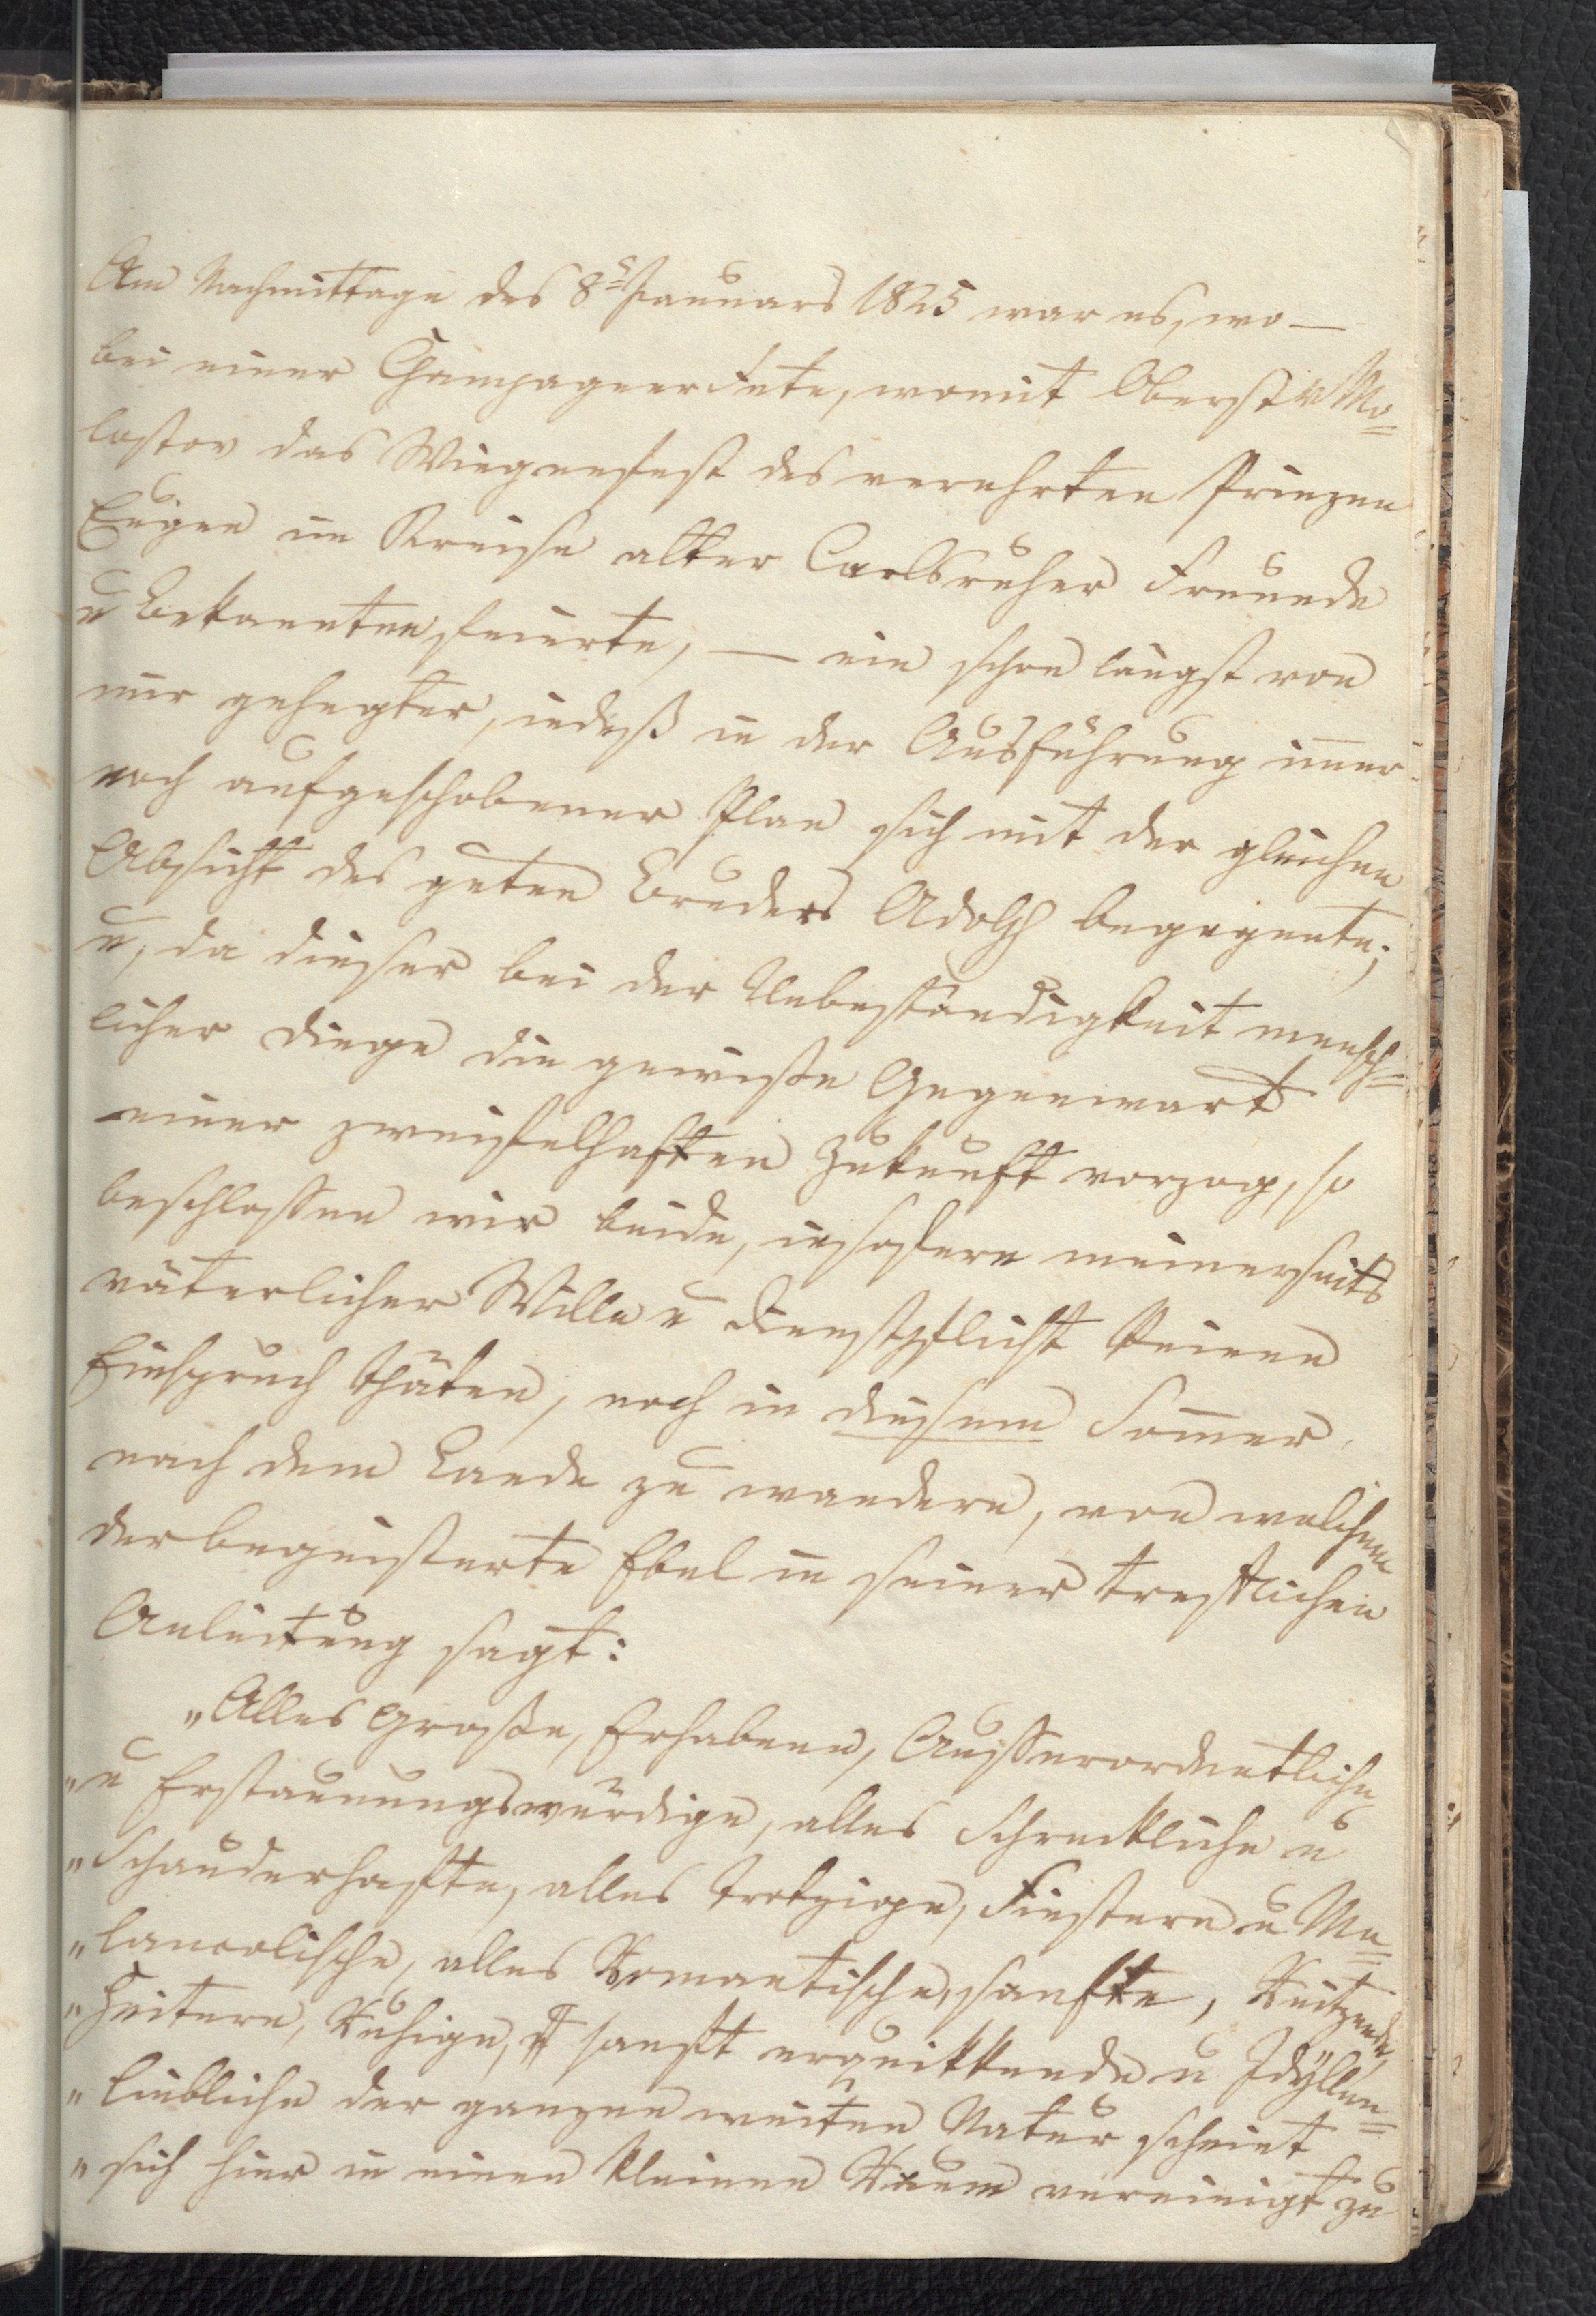 Am Nachmittage des 8ᵗ Januars 1825 war es, wo —
bei einer Champagner Fete, womit Oberst v Mo=
lostov das Wiegenfest des verehrten Prinzen
Eugen im Kreise alter Carlsruher Freunde
u Bekannten feierte, — ein schon längst von
mir gehegter, indeß in der Ausführung im̅er
noch aufgeschobener Plan sich mit der gleichen
Absicht des guten Bruders Adolph begegnete;
u, da dieser bei der Unbeständigkeit mensch=
licher Dinge die gewisse Gegenwart
einer zweifelhaften Zukunft vorzog, so
beschlossen wir beide, insofern meinerseits
väterlicher Wille u Dienstpflicht keinen
Einspruch thäten, noch in diesem Som̅er
nach dem Lande zu wandern, von welchem
der begeisterte Ebel in seiner trefflichen
Anleitung sagt:
„Alles Große, Erhabene, Ausserordentliche
„u Erstaunungswürdige, alles Schreckliche u
„Schauderhafte, alles Trotzige, Finstere u Me=
„lancolische, alles Romantische, sanfte, Reitzende,
„Heitere, Ruhige, sanft erquikkende u Idyllen=
„liebliche der ganzen weiten Natur scheint
„sich hier in einen kleinen Raum vereinigt zu